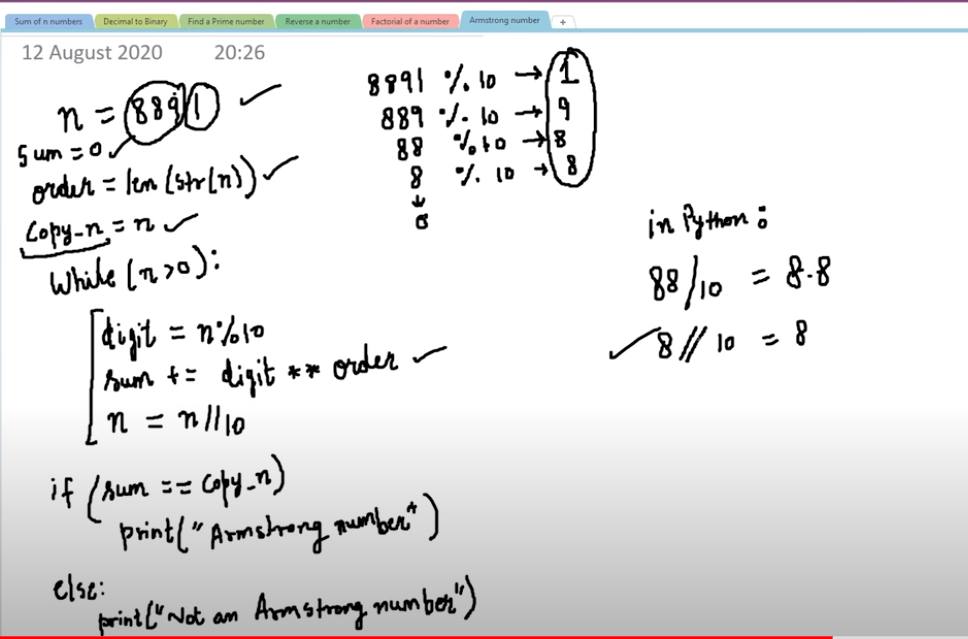 Sum of n numbers
Decimal to Binary
Find a Prime number
Reverse a number
Factorial of a number
Armstrong number
+
12 August 2020 20:26
n = 8891
Sum = 0
order = len (str(n))
Copy_n = n
While (n>0):
digit = n%10
sum += digit ** order
n = n//10
if (sum == Copy_n)
print("Armstrong number")
else:
print("Not an Armstrong number")
8891 % 10 → 1
889 % 10 → 9
88 % 10 → 8
8 % 10 → 8
↓
0
in Python:
88/10 = 8.8
8//10 = 8